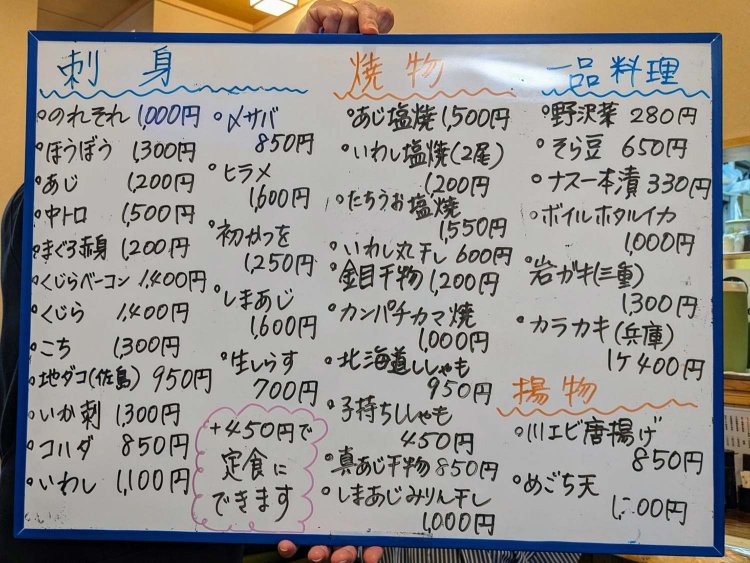 刺身
のれそれ 1,000円
ほうぼう 1,300円
あじ 1,200円
中トロ 1,500円
まぐろ赤身 1,200円
くじらベーコン 1,400円
くじら 1,400円
こち 1,300円
地ダコ(佐島) 950円
いか刺 1,300円
コハダ 850円
いわし 1,100円
〆サバ
850円
ヒラメ
1,600円
初かつを
1,250円
しまあじ
1,600円
生しらす
700円
+450円で
定食に
できます
焼物
あじ塩焼 1,500円
いわし塩焼(2尾)
1,200円
たちうお塩焼
1,550円
いわし丸干し 600円
金目干物 1,200円
カンパチカマ焼
1,000円
北海道ししゃも
950円
子持ちししゃも
450円
真あじ干物 850円
しまあじみりん干し
1,000円
一品料理
野沢菜 280円
そら豆 650円
ナス一本漬 330円
ボイルホタルイカ
1,000円
岩ガキ(三重)
1,300円
カラカキ(兵庫)
1ケ 400円
揚物
川エビ唐揚げ
850円
めごち天